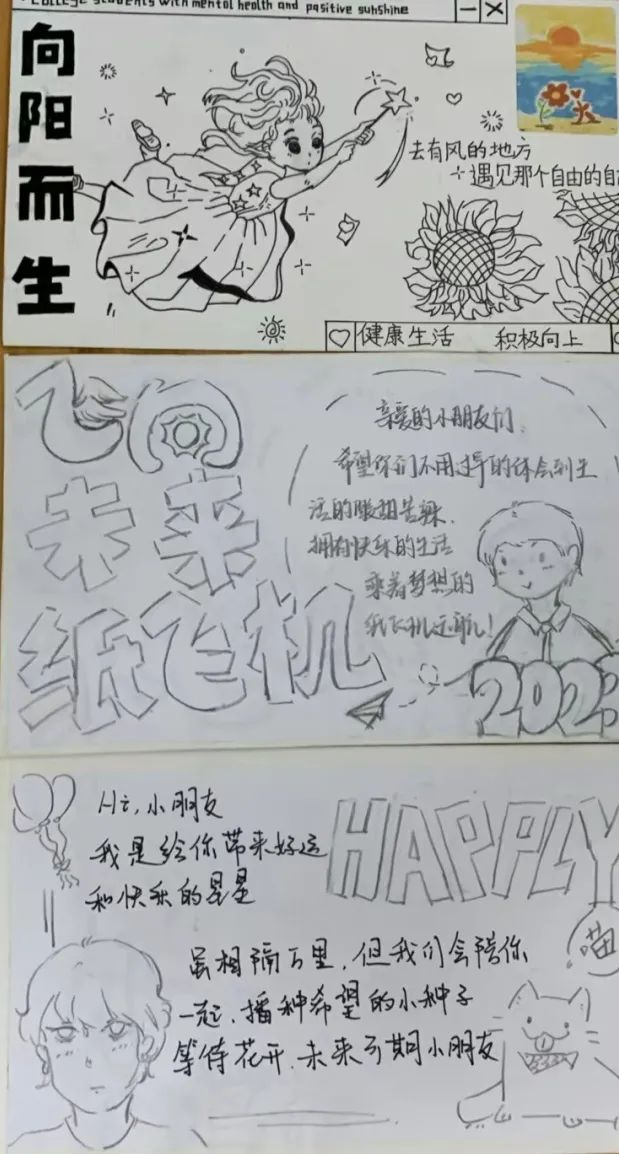 College students with mental health and pasitive suhshine
向
阳
而
生
去有风的地方
遇见那个自由的自
健康生活 积极向上
飞向
未来
纸飞机
亲爱的小朋友们,
希望你们不用过早的体会到生
活的酸甜苦辣,
拥有快乐的生活
乘着梦想的
纸飞机远航!
202
Hi,小朋友
我是给你带来好运
和快乐的星星
HAPPLY
喵
虽相隔万里,但我们会陪你
一起,播种希望的小种子
等待花开,未来可期小朋友